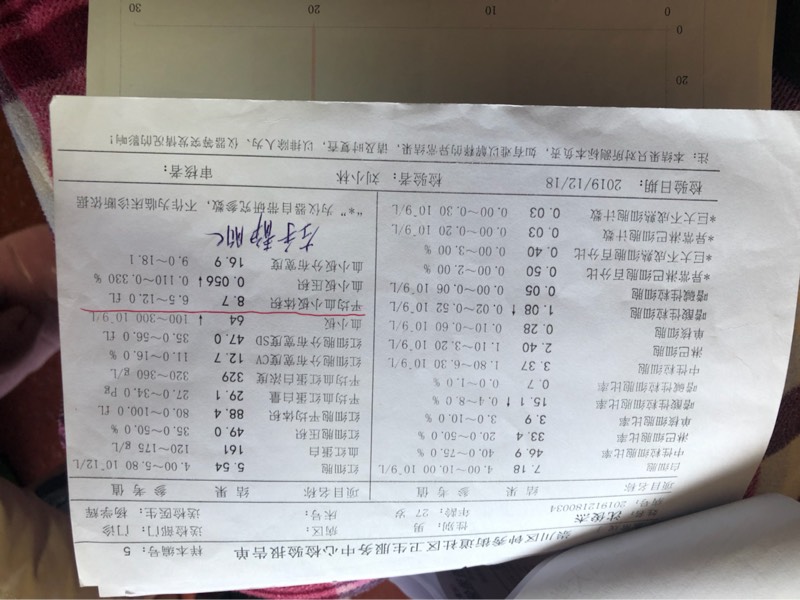 崇川区钟秀街道社区卫生服务中心检验报告单 样本编号: 5
沈俊杰 性别: 男 病区: 送检部门: 门诊
201912180034 年龄: 27 岁 床号: 送检医生: 杨学辉
项目名称 结果 参考值 项目名称 结果 参考值
白细胞 7.18 4.00~10.00 10^9/L 红细胞 5.54 4.00~5.80 10^12/L
中性粒细胞比率 46.9 40.0~75.0 % 血红蛋白 161 120~175 g/L
淋巴细胞比率 33.4 20.0~50.0 % 红细胞压积 49.0 35.0~50.0 %
单核细胞比率 3.9 3.0~10.0 % 红细胞平均体积 88.4 80.0~100.0 fL
嗜酸性粒细胞比率 15.1 ↑ 0.4~8.0 % 平均血红蛋白量 29.1 27.0~34.0 Pg
嗜碱性粒细胞比率 0.7 0.0~1.0 % 平均血红蛋白浓度 329 320~360 g/L
中性粒细胞 3.37 1.80~6.30 10^9/L 红细胞分布宽度CV 12.7 11.0~16.0 %
淋巴细胞 2.40 1.10~3.20 10^9/L 红细胞分布宽度SD 47.0 35.0~56.0 fL
单核细胞 0.28 0.10~0.60 10^9/L 血小板 64 ↓ 100~300 10^9/L
嗜酸性粒细胞 1.08 ↑ 0.02~0.52 10^9/L 平均血小板体积 8.7 6.5~12.0 fL
嗜碱性粒细胞 0.05 0.00~0.06 10^9/L 血小板压积 0.056 ↓ 0.110~0.330 %
*异常淋巴细胞百分比 0.50 0.00~2.00 % 血小板分布宽度 16.9 9.0~18.1
*巨大不成熟细胞百分比 0.40 0.00~3.00 % 左手静脉
*异常淋巴细胞计数 0.03 0.00~0.20 10^9/L
*巨大不成熟细胞计数 0.03 0.00~0.30 10^9/L "*"为仪器自带研究参数，不作为临床诊断依据
检验日期: 2019/12/18 检验者: 刘小林 审核者:
注: 本结果只对所测标本负责，如有难以解释的异常结果，请及时复查，以排除人为、仪器等突发情况的影响!
20
0 10 20 30